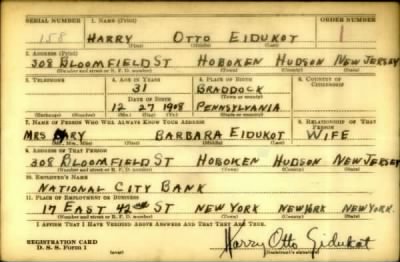 SERIAL NUMBER 1. NAME (Print) ORDER NUMBER
158 HARRY OTTO EIDUKOT 1
(First) (Middle) (Last)
2. ADDRESS (Print)
308 BLOOMFIELD ST HOBOKEN HUDSON NEW JERSEY
(Number and street or R. F. D. number) (Town) (County) (State)
3. TELEPHONE 4. AGE IN YEARS 5. PLACE OF BIRTH 6. COUNTRY OF CITIZENSHIP
31 BRADDOCK
DATE OF BIRTH (Town or county)
12 27 1908 PENNSYLVANIA
(Exchange) (Number) (Mo.) (Day) (Yr.) (State or country)
7. NAME OF PERSON WHO WILL ALWAYS KNOW YOUR ADDRESS 8. RELATIONSHIP OF THAT PERSON
MRS BARBARA EIDUKOT WIFE
(Mr., Mrs., Miss) (First) (Middle) (Last)
9. ADDRESS OF THAT PERSON
308 BLOOMFIELD ST HOBOKEN HUDSON NEW JERSEY
(Number and street or R. F. D. number) (Town) (County) (State)
10. EMPLOYER'S NAME
NATIONAL CITY BANK
11. PLACE OF EMPLOYMENT OR BUSINESS
17 EAST 42nd ST NEW YORK NEW YORK NEW YORK.
(Number and street or R. F. D. number) (Town) (County) (State)
I AFFIRM THAT I HAVE VERIFIED ABOVE ANSWERS AND THAT THEY ARE TRUE.
REGISTRATION CARD
D. S. S. Form 1 (over) Harry Otto Eidukot
(Registrant's signature)